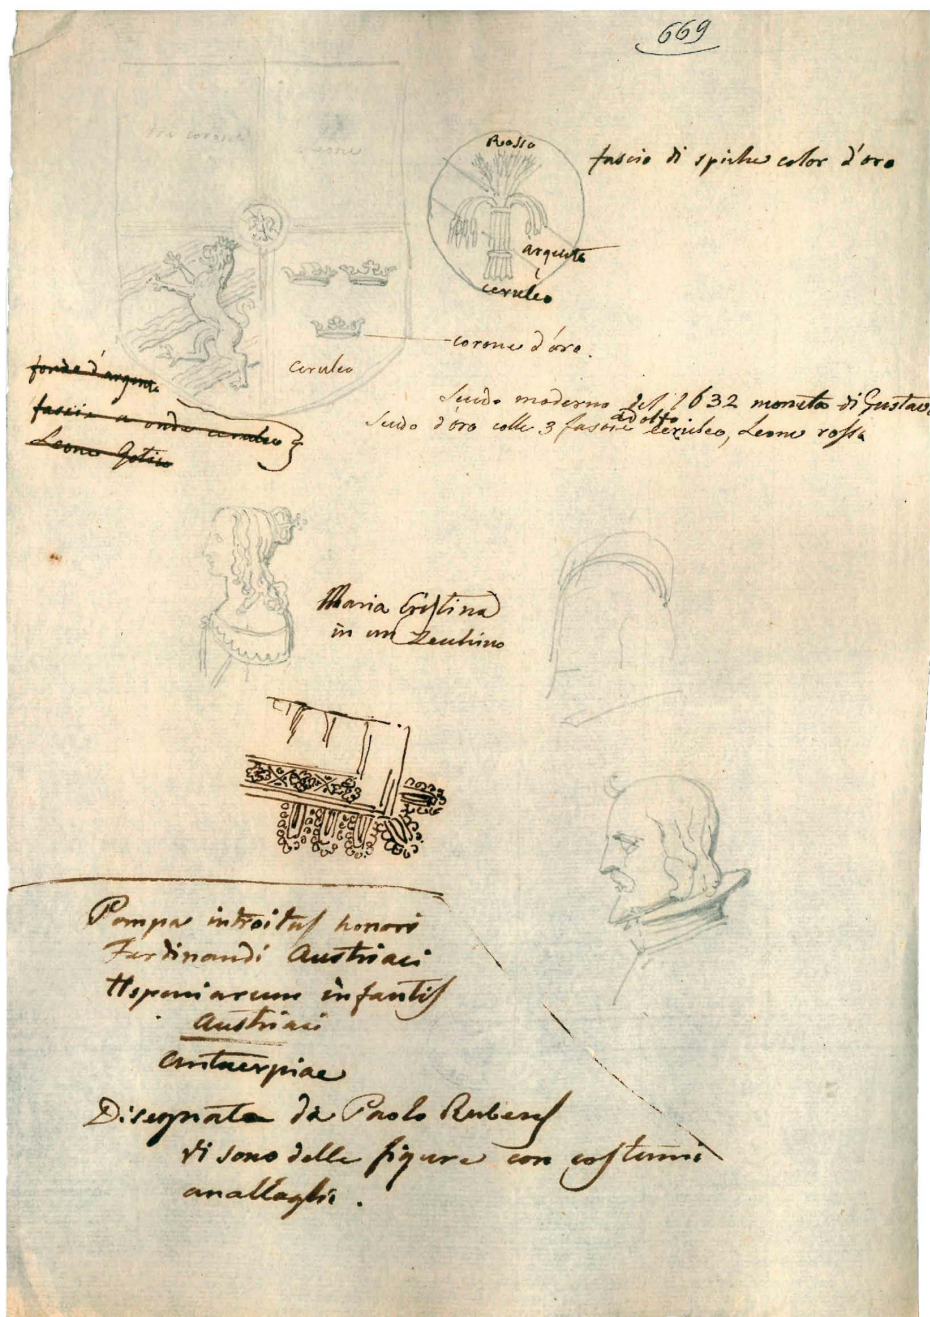 669
tre corone
Leone
Rosso
fascio di spiche color d'oro
argento
ceruleo
corone d'oro.
ceruleo
fondo d'argento
fascie a onde ceruleo
Leone Gotico
Scudo moderno del 1632 moneta di Gustavo
adolfo
Scudo d'oro colle 3 fascie ceruleo, Leone rosso
Maria Cristina
in un Zecchino
Pompa introitus honori
Ferdinandi Austriaci
Hispaniarum infantis
Austriaci
Antuerpiae
Disegnata da Paolo Rubens
vi sono delle figure con costumi